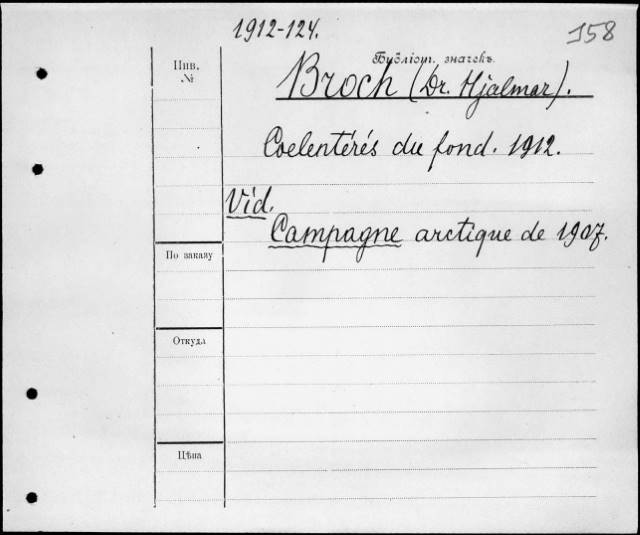 1912-124.
158
Библіот. значекъ.
Инв.
№
Broch (Dr. Hjalmar).
Coelentérés du fond. 1912.
Vid.
Campagne arctique de 1907.
По заказу
Откуда
Цѣна